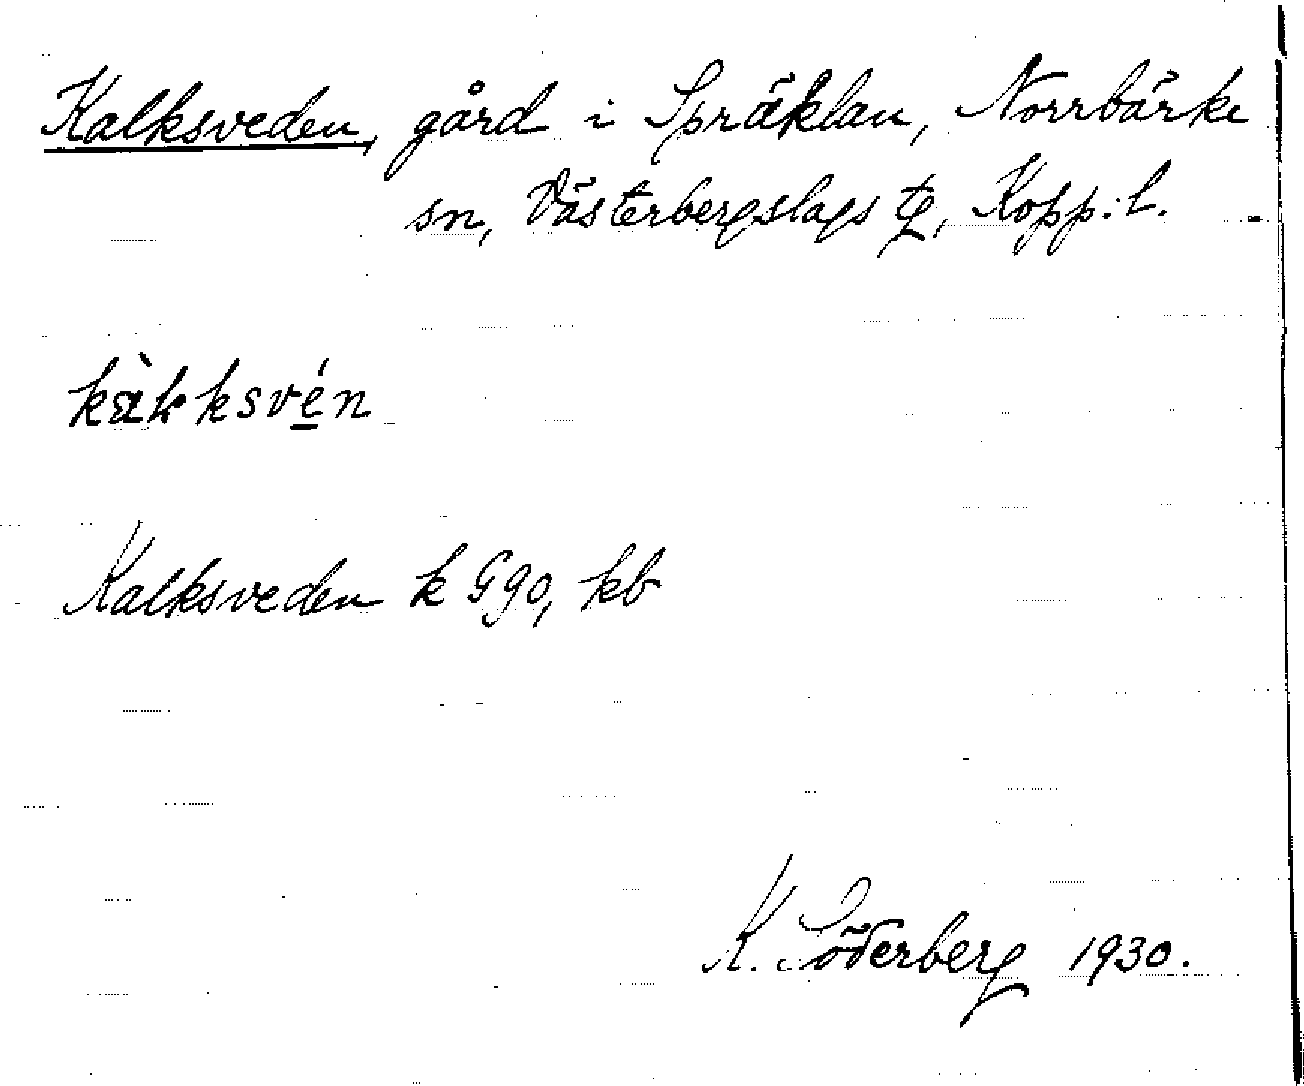 Kalksveden, gård i Spräklan, Norrbärke
sn, Västerbergslags tg, Kopp. l.
kàkksvén
Kalksveden k G90, kb
K. Söderberg 1930.